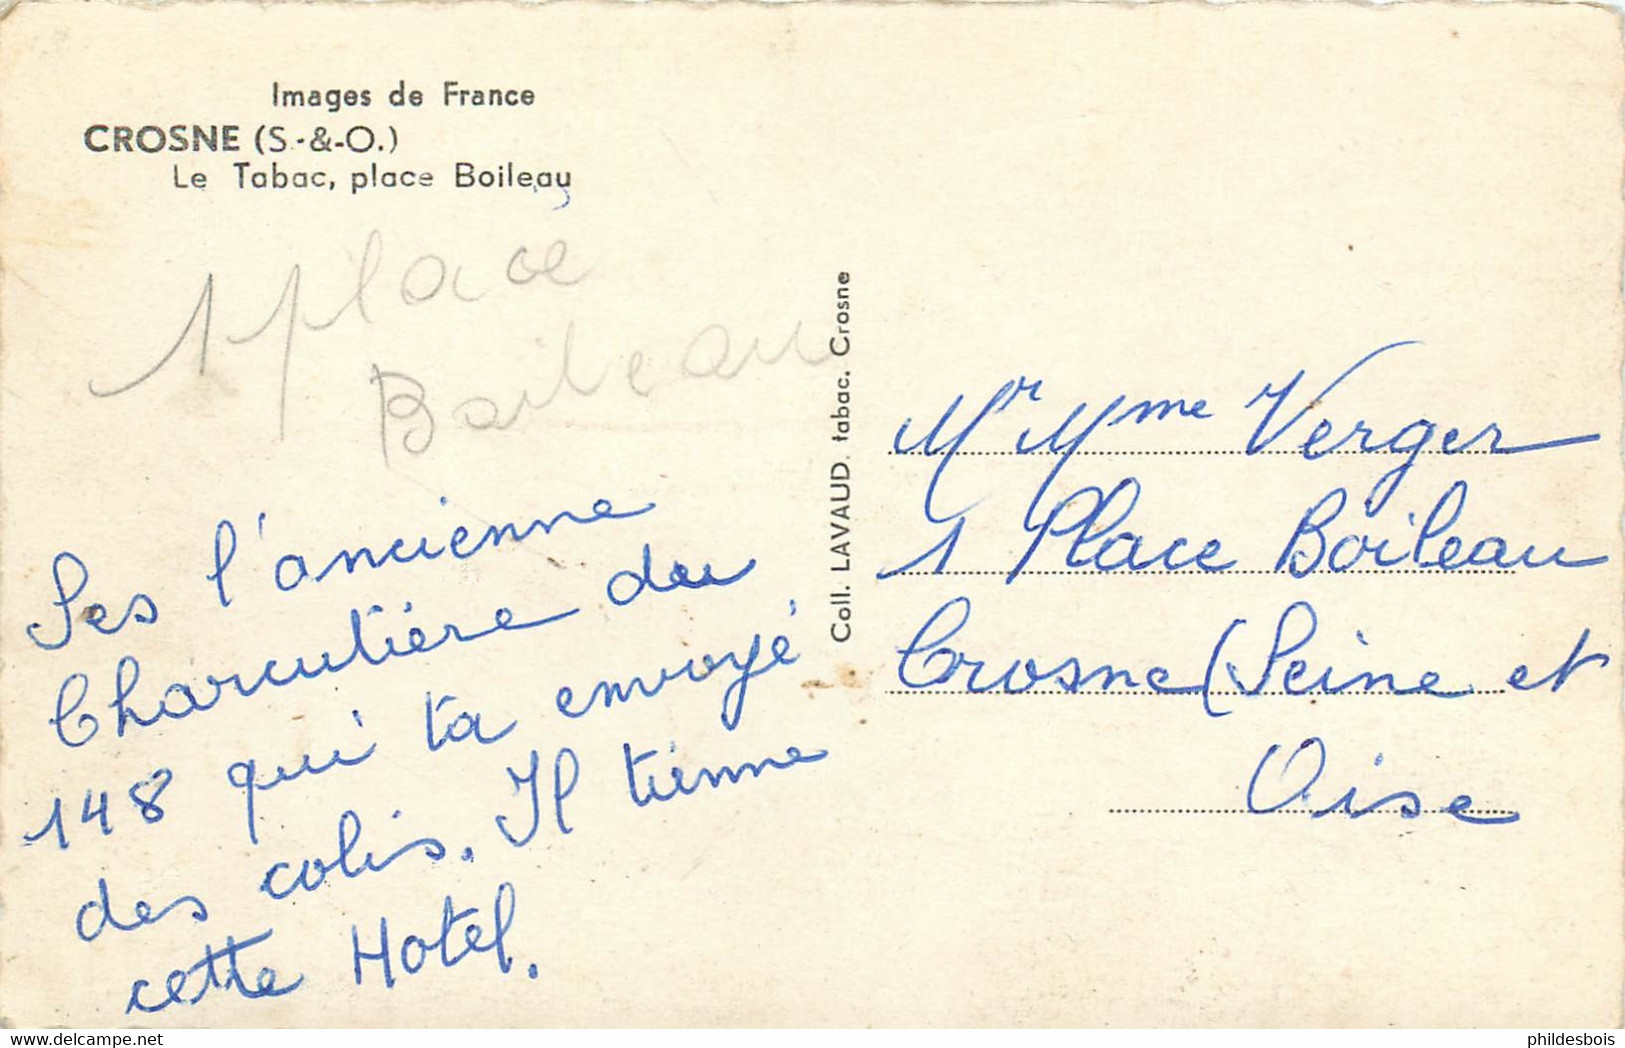 Images de France
CROSNE (S.-&-O.)
Le Tabac, place Boileau
1 place
Boileau
Ses l'ancienne
Charcutière du
148 qui ta envoyé
des colis. Il tienne
cette Hotel.
Coll. LAVAUD. tabac. Crosne
Mr Mme Verger
1 Place Boileau
Crosne (Seine et
Oise
phildesbois